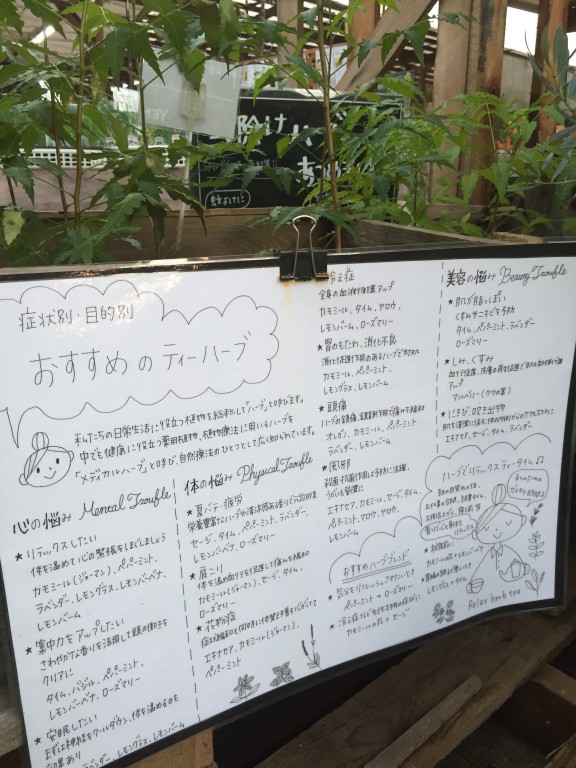 症状別・目的別
おすすめのティーハーブ
私たちの日常生活に役立つ植物を総称して「ハーブ」と呼びます。
中でも健康に役立つ薬用植物、植物療法に用いるハーブを
「メディカルハーブ」と呼び、自然療法のひとつとして広く知られています。
心の悩み Mental Trouble
★ リラックスしたい
体を温めて心の緊張をほぐしましょう
カモミール(ジャーマン)、ペパーミント、
ラベンダー、レモングラス、レモンバーベナ、
レモンバーム
★ 集中力をアップしたい
さわやかな香りを活用して頭の働きを
クリアに
タイム、バジル、ペパーミント、
レモンバーベナ、ローズマリー
★ 安眠したい
まずは神経をクールダウン、体を温めるのも
効果あり
ラベンダー、レモングラス、レモンバーム
体の悩み Physical Trouble
★ 夏バテ・疲労
セージ、タイム、ペパーミント、ラベンダー、
レモンバーベナ、ローズマリー
★ 肩こり
体を温め血行を促進して痛みを緩和
カモミール(ジャーマン)、セージ、タイム、
ローズマリー
★ 花粉症
エキナセア、カモミール(ジャーマン)、
ペパーミント
冷え症
全身の血液循環アップ
カモミール、タイム、ヤロウ、
レモンバーム、ローズマリー
★ 胃のもたれ、消化不良
消化促進作用のあるハーブで
カモミール、ペパーミント、
レモングラス、レモンバーム
★ 頭痛
オレガノ、カモミール、ペパーミント
ラベンダー、レモンバーム
★ 風邪
殺菌・抗菌作用は予防に活躍
うがいも習慣に
エキナセア、カモミール、セージ、タイム、
ペパーミント、マロウ、ヤロウ、
レモンバーム
おすすめハーブブレンド
★ 気分をリフレッシュさせたいとき
ペパーミント + ローズマリー
カモミール + セージ
美容の悩み Beauty Trouble
★ 肌が脂っぽい
くすみやニキビを予防
タイム、ペパーミント、ラベンダー
ローズマリー
★ しみ、くすみ
アップ
マルベリー(クワの葉)
★ にきび、吹き出物
エキナセア、セージ、タイム、ラベンダー
ハーブでリラックスティータイム♪
カモミール + レモンバーベナ
レモングラス + タイム
Relax herb tea